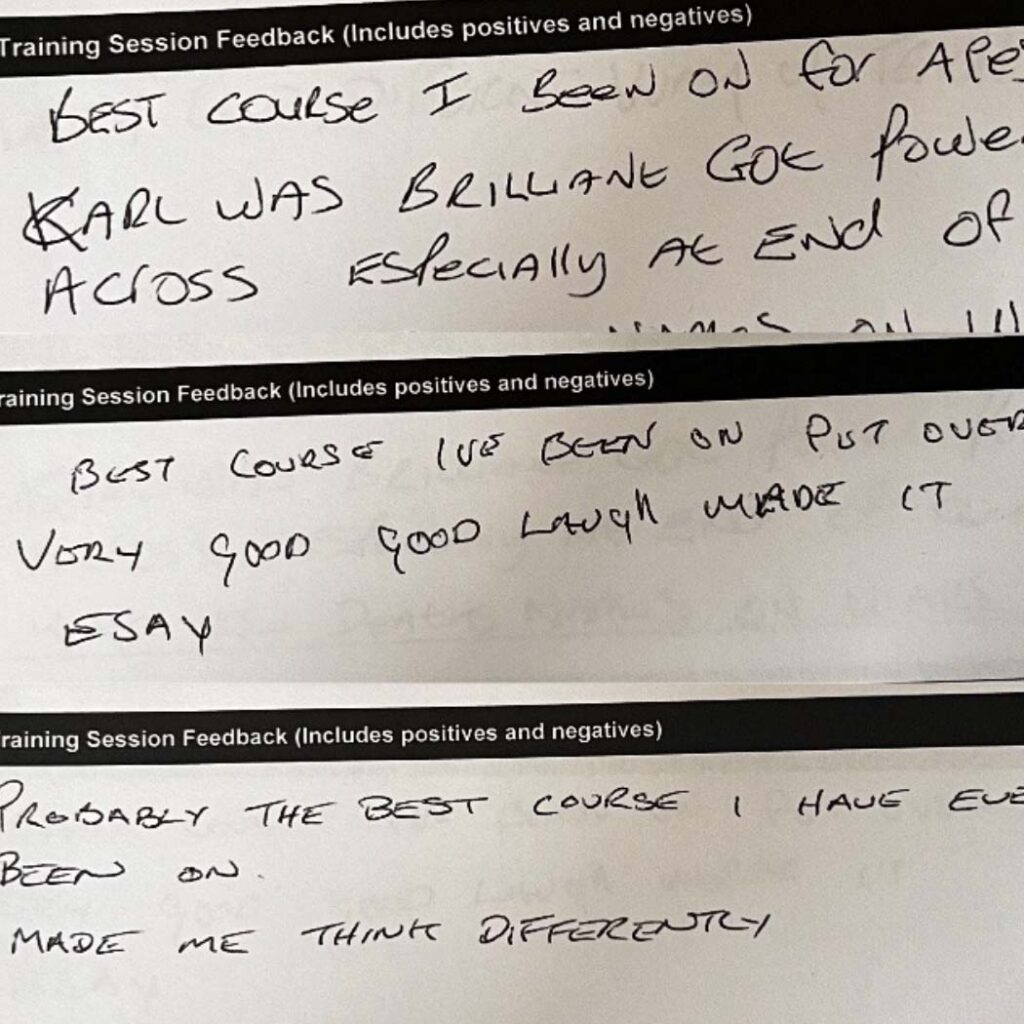 Training Session Feedback (Includes positives and negatives)
BEST COURSE I BEEN ON for
KARL WAS BRILLIANT GOT
ACROSS ESPECIALLY AT END OF
raining Session Feedback (Includes positives and negatives)
BEST COURSE IVE BEEN ON PUT OVER
VERY GOOD GOOD LAUGH MADE IT
ESAY
raining Session Feedback (Includes positives and negatives)
PROBABLY THE BEST COURSE I HAVE EVE
BEEN ON.
MADE ME THINK DIFFERENTLY